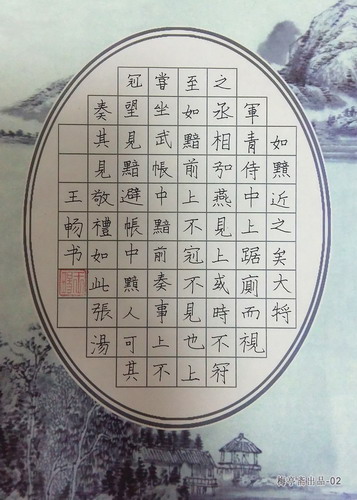 如黯近之矣大將
軍青侍中上踞廁而視
之丞相弘燕見上或時不冠
至如黯前上不冠不見也上
嘗坐武帳中黯前奏事上不
冠望見黯避帳中黯人可其
奏其見敬禮如此張湯
王畅书
梅亭斋出品-02